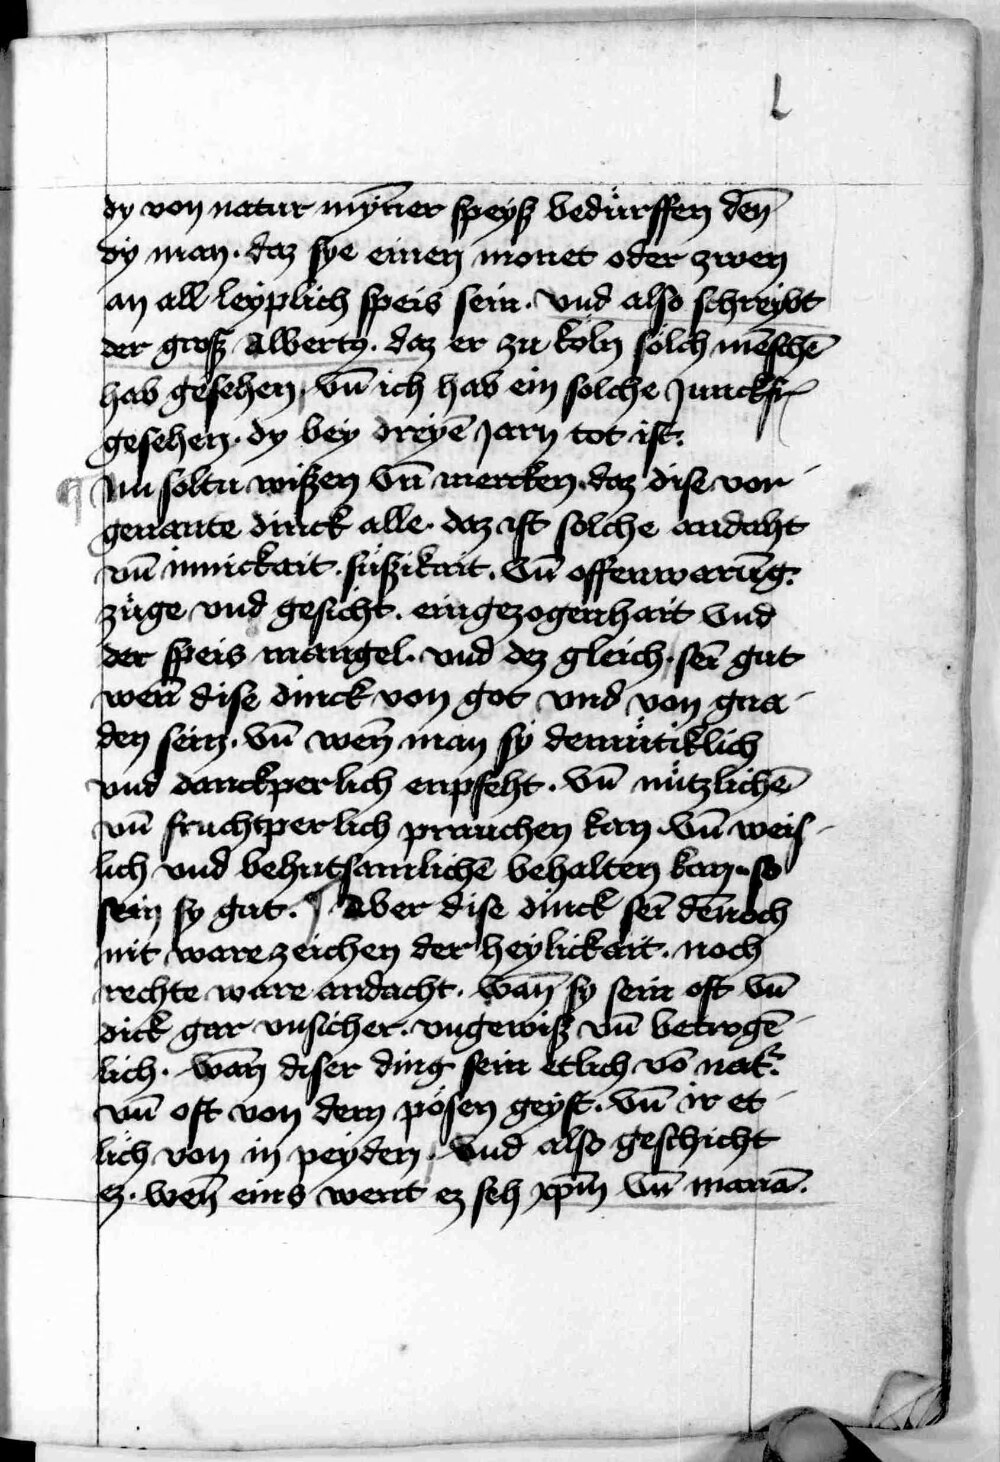 L
dy von natur mỹner speyß bedürffen deñ
dy man. daz sye einen monet oder zwen
an all leyplich speis sein. vnd also schreybt
der groß Albertꝰ. daz er zu köln sölch mēschē
hab gesehen, vñ ich hab ein solche Junckfr
gesehen. dy bey dreyē Jarn tot ist.
Nu soltu wißen vñ mercken. daz dise vor-
genante dinck alle. daz ist solche andaht
vñ innickait. süßikait. vñ offenwarūg.
züge vnd gesicht. eingezogenhait vnd
der speis mangel. vnd dez gleich. sei gut
weñ dise dinck von got vnd von gna-
den sein. vñ weñ man sy demütiklich
vnd danckperlich enpfeht. vñ nützlichē
vñ fruchtperlich prauchen kan. vñ weis-
lich vnd behutsamlichē behalten kan. so
sein sy gut. Aber dise dinck sei deñoch
nit ware zeichen der heylickait. noch
rechte ware andacht. wañ sy sein oft vñ
dick gar vnsicher. vngewiß vñ betrogē-
lich. wañ diser ding sein etlich vō nat.
vñ oft von dem pösen geyst. vñ ir et-
lich von in peyden. vnd also geschicht
ez. weñ eins went ez seh xp̄m vñ mariā.